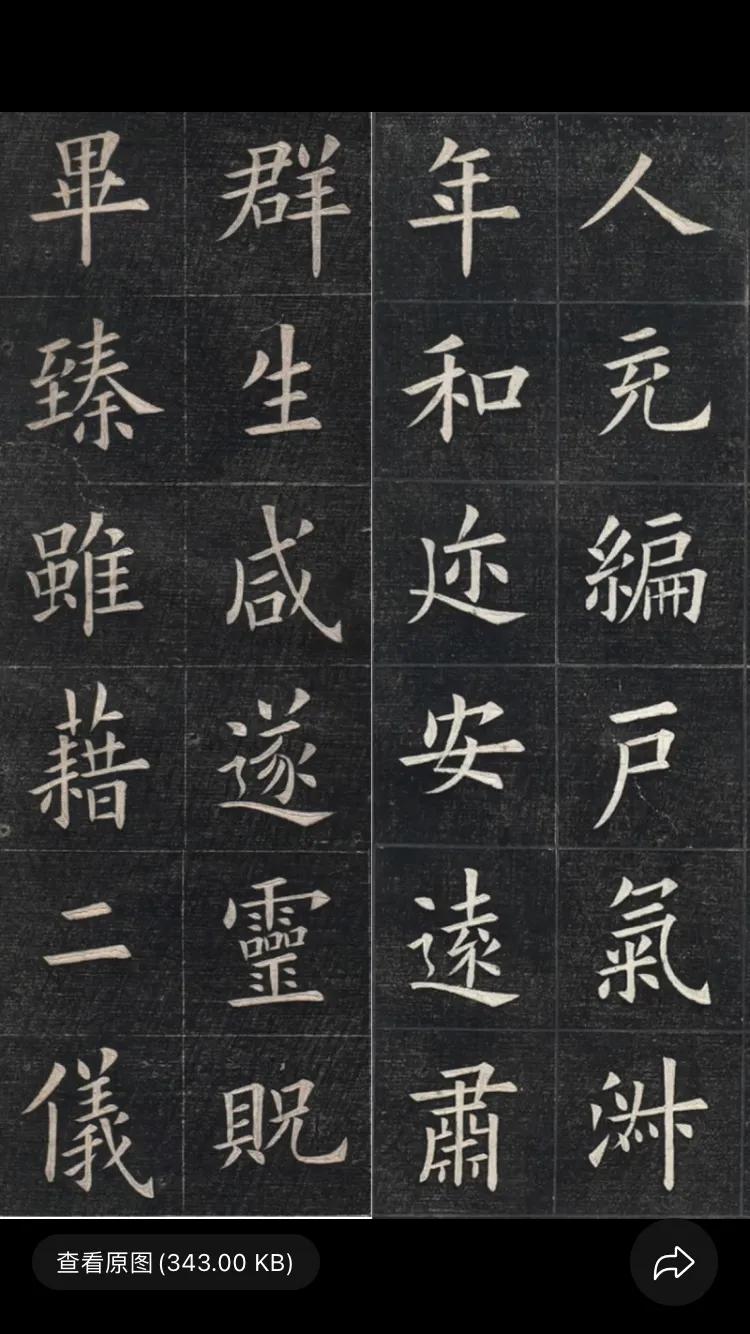 人充編戸氣淑
年和迩安遠肅
群生咸遂靈貺
畢臻雖藉二儀
查看原图(343.00 KB)